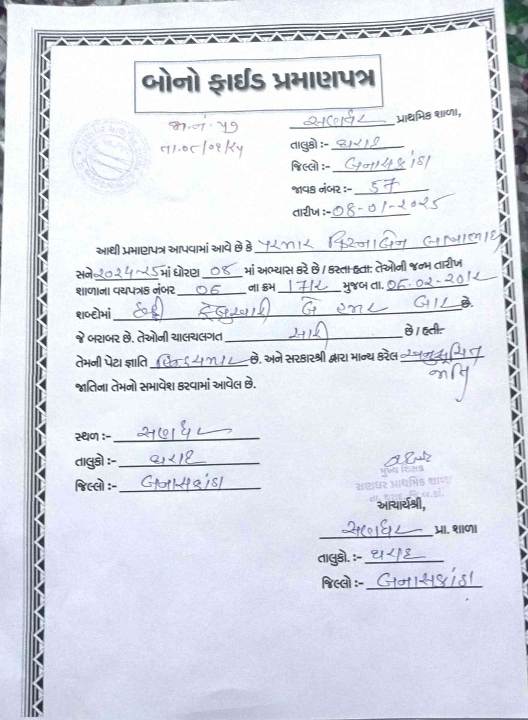 બોનો ફાઈડ પ્રમાણપત્ર
જા.નં. ૫૭
તા.૦૮/૦૧/૨૫
સણધર પ્રાથમિક શાળા,
તાલુકો :- થરાદ
જિલ્લો :- બનાસકાંઠા
જાવક નંબર :- 57
તારીખ :- 08-01-2025
આથી પ્રમાણપત્ર આપવામાં આવે છે કે પરમાર
સને ૨૦૨૪-૨૫ માં ધોરણ ૦૪ માં અભ્યાસ કરે છે / કરતા હતા. તેઓની જન્મ તારીખ
શાળાના વયપત્રક નંબર 06 ના ક્રમ 1712 મુજબ તા. 06-02-2012
શબ્દોમાં છઠ્ઠી ફેબ્રુઆરી બે હજાર બાર છે.
જે બરાબર છે. તેઓની ચાલચલગત સારી છે / હતી.
તેમની પેટા જ્ઞાતિ છે. અને સરકારશ્રી દ્વારા માન્ય કરેલ અનુસૂચિત
જાતિ
જાતિના તેમનો સમાવેશ કરવામાં આવેલ છે.
સ્થળ :- સણધર
તાલુકો :- થરાદ
જિલ્લો :- બનાસકાંઠા
મુખ્ય શિક્ષક
સણધર પ્રાથમિક શાળા
તા. થરાદ જિ.બ.કાં.
આચાર્યશ્રી,
સણધર પ્રા. શાળા
તાલુકો. :- થરાદ
જિલ્લો :- બનાસકાંઠા